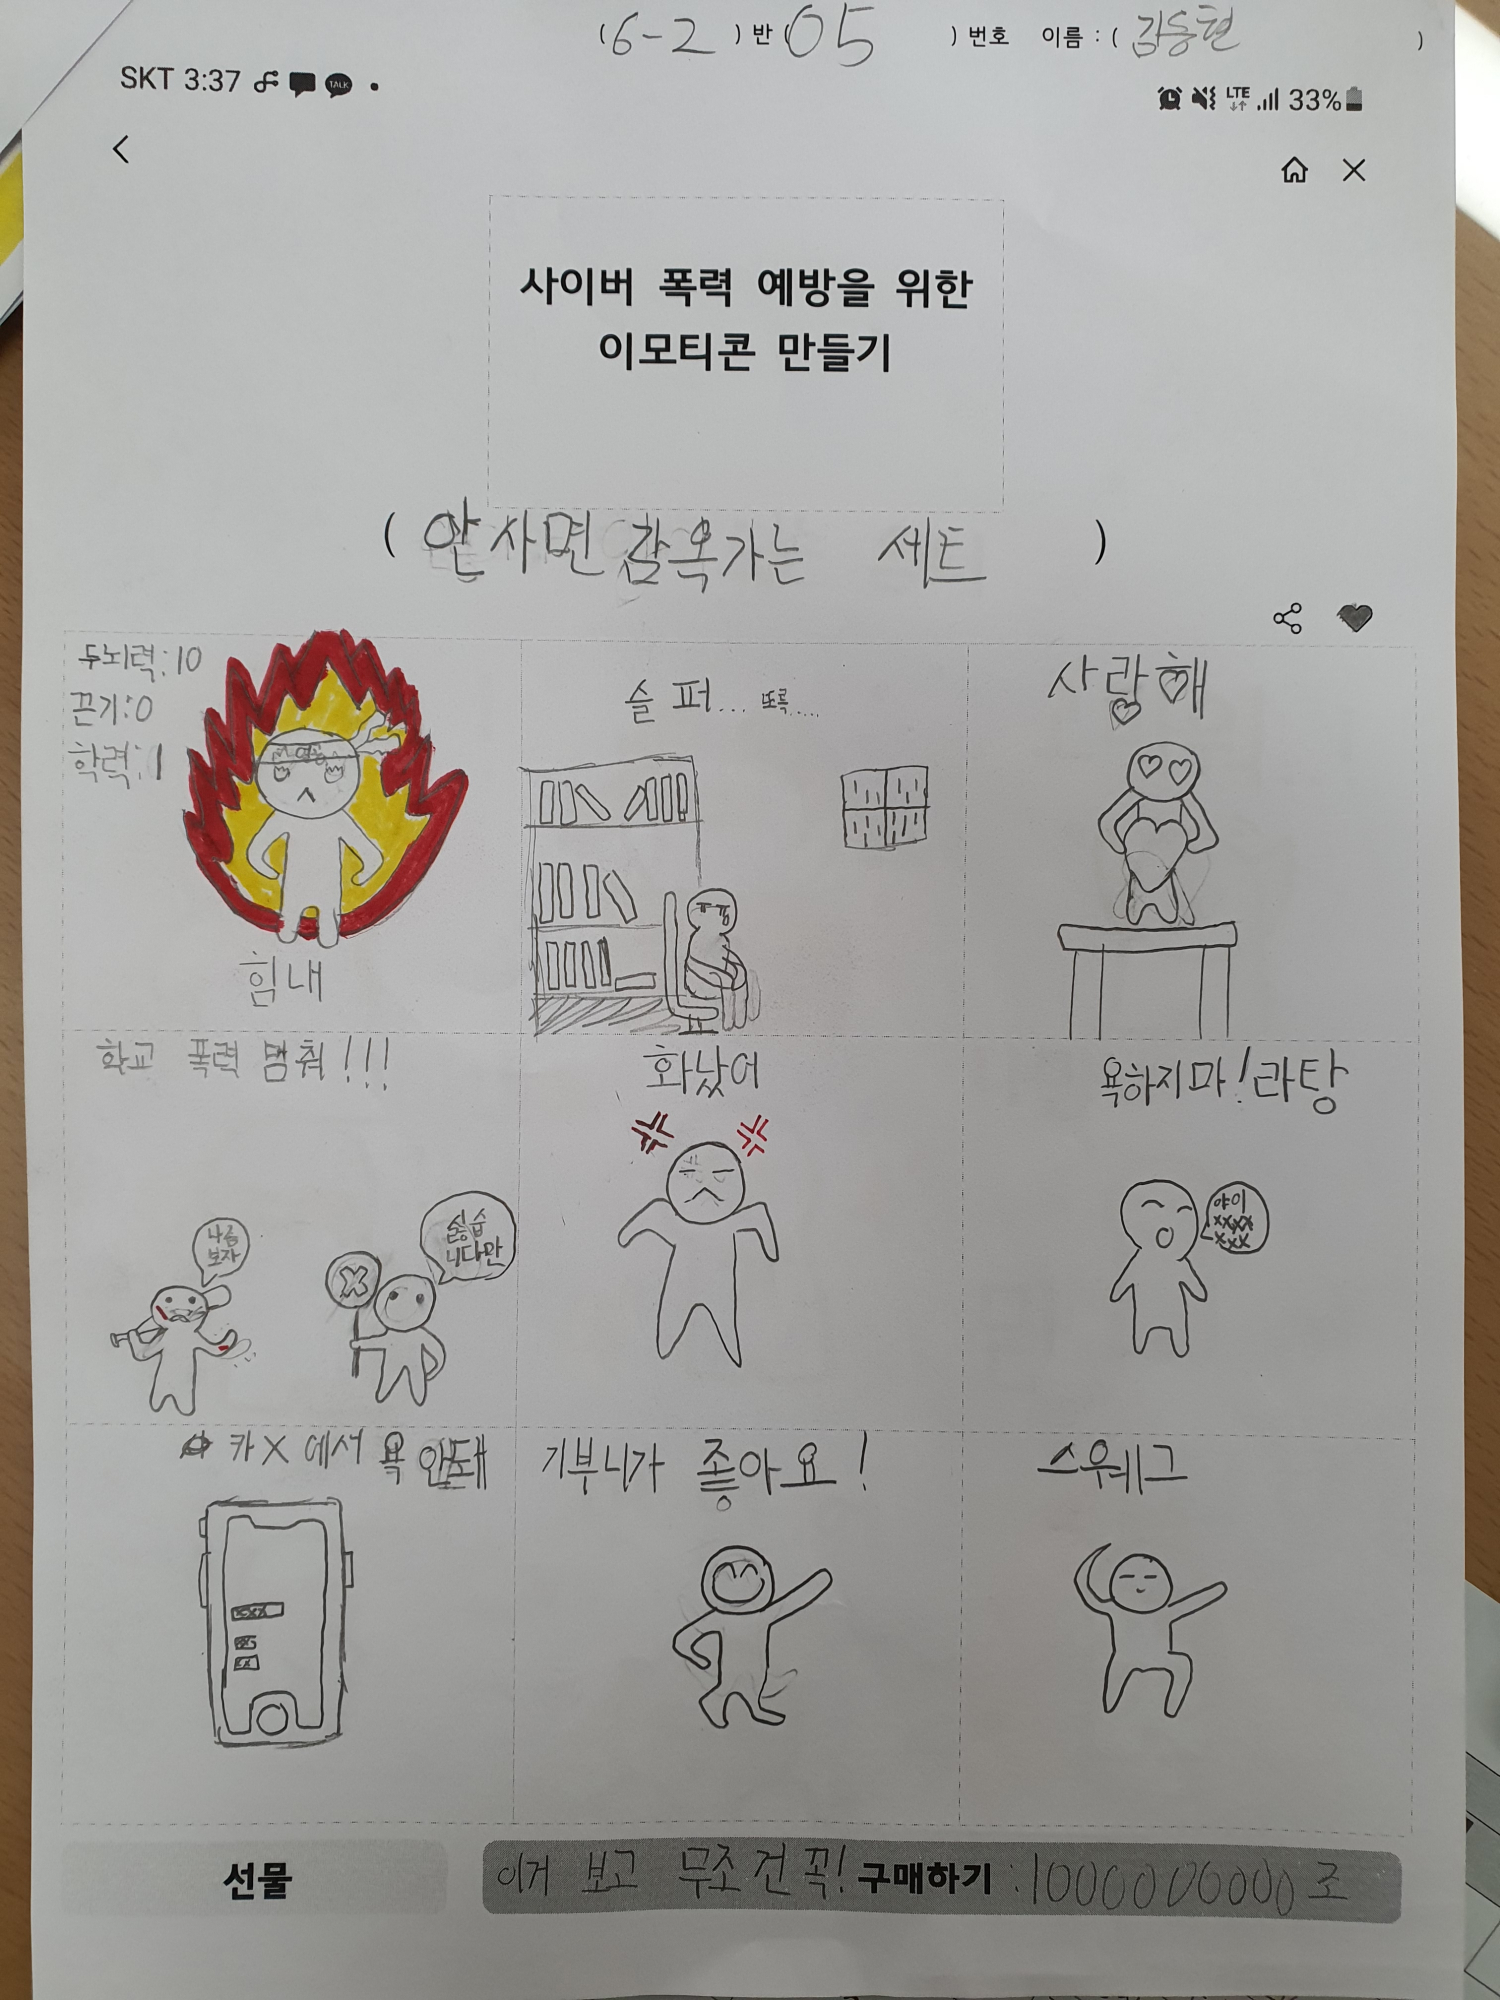 (6-2 ) 반 ( 05 ) 번호 이름 : ( 김동현 )
SKT 3:37 TALK LTE 33%
사이버 폭력 예방을 위한
이모티콘 만들기
( 안사면 감옥가는 세트 )
두뇌력:10
끈기:0
학력:1
힘내
슬퍼... 또륵....
사랑해
학교 폭력 멈춰!!!
나좀
보자
싫습
니다만
화났어
욕하지마!라탕
야이
xxxx
xxx
카X에서 욕 안돼
xxx
xx
xx
기부니가 좋아요!
스우웨그
선물
이거 보고 무조건 꼭! 구매하기 : 10000000000조